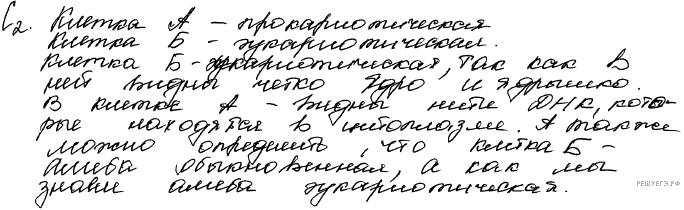 С2. Клетка А – прокариотическая
Клетка Б – эукариотическая.
Клетка Б – эукариотическая, так как в
ней видны четко ядро и ядрышко.
В клетке А – видны нити ДНК, кото-
рые находятся в цитоплазме. А также
можно определить, что клетка Б –
амеба обыкновенная, а как мы
знаем амеба эукариотическая.
РЕШУЕГЭ.РФ